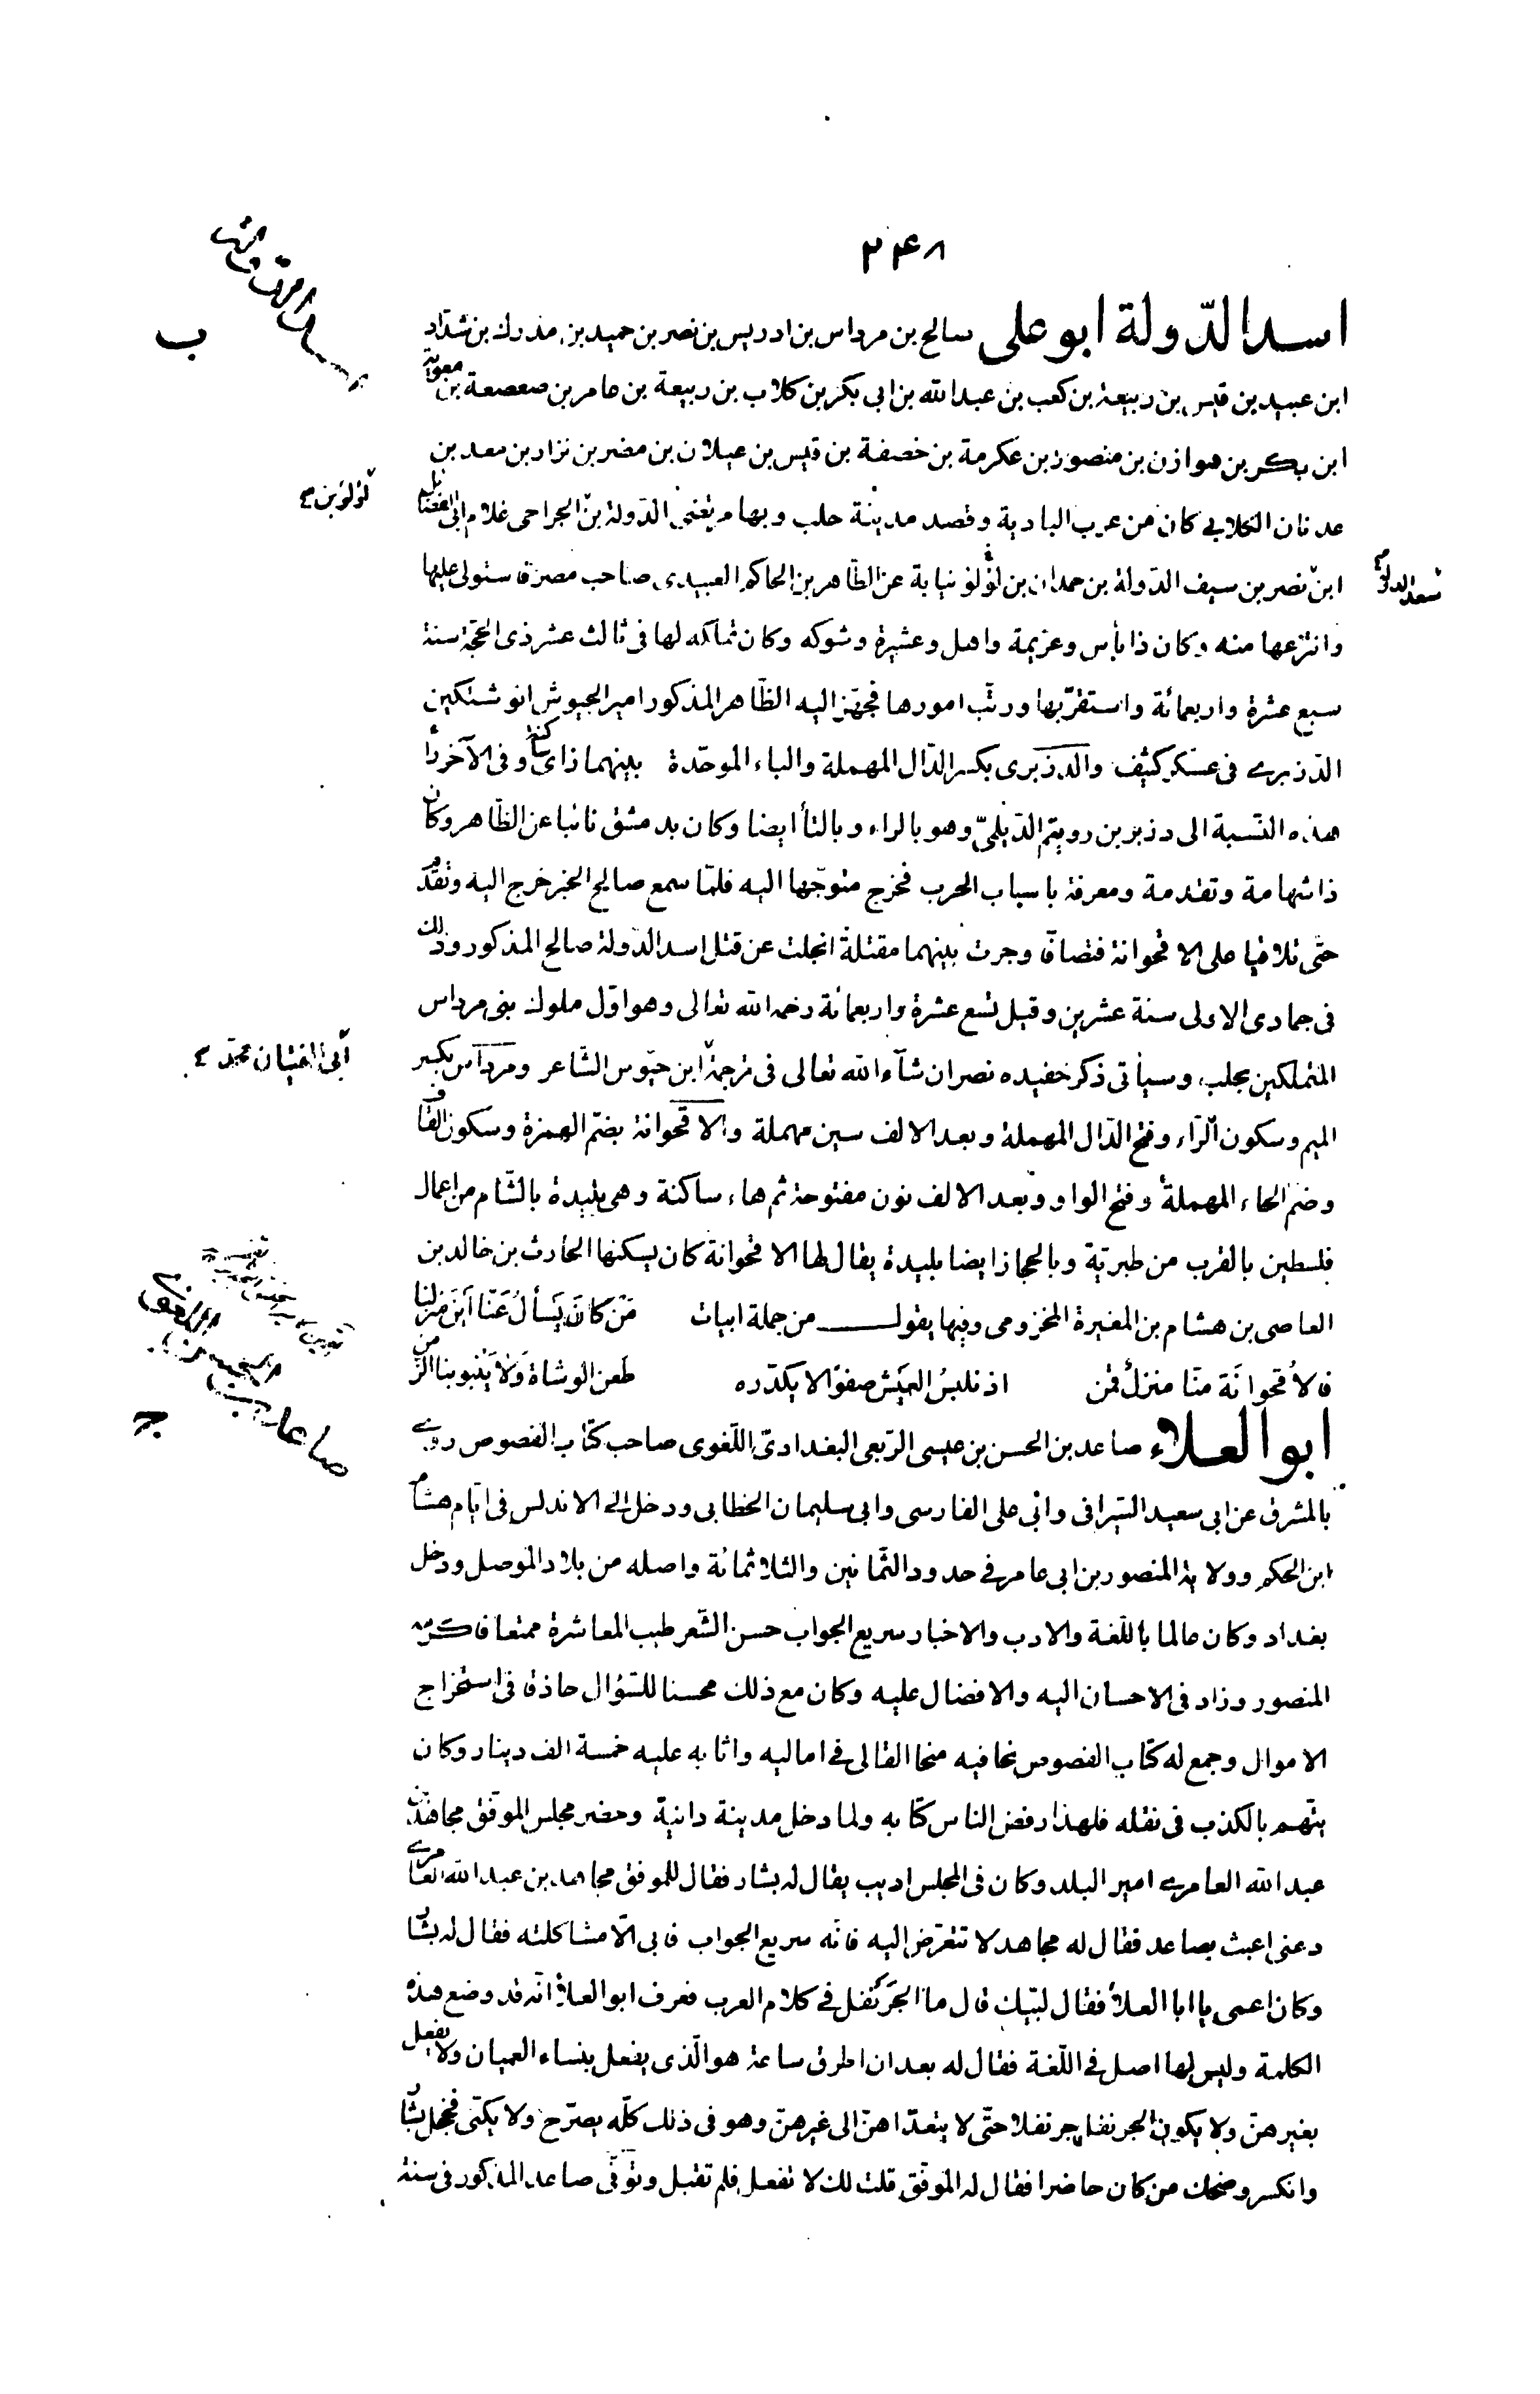 ٢٤٨
اسد الدّولة ابو على صالح بن مرداس بن ادريس بن نصر بن حميد بن مدرك بن شدّاد
ابن عبيد بن قيس بن ربيعة بن كعب بن عبد الله بن ابى بكر بن كلاب بن ربيعة بن عامر بن صعصعة بن معوية
ابن بكر بن هوازن بن منصور بن عكرمة بن خصفة بن قيس بن عيلان بن مضر بن نزار بن معد بن
عدنان الكلابى كان من عرب البادية وقصد مدينة حلب وبها مرتضى الدّولة بن الجراحى غلام ابى الفضايل
لؤلؤ بن
ابن نصر بن سيف الدّولة بن حمدان بن لؤلؤ نيابة عن الظاهر بن الحاكم العبيدى صاحب مصر فاستولى عليها
سعد الدولة
وانتزعها منه وكان ذا بأس وعزيمة واهل وعشيرة وشوكه وكان تملكه لها فى ثالث عشر ذى الحجّة سنة
سبع عشرة واربعمائة واستقرّ بها ورتّب امورها فجهّز اليه الظّاهر المذكور امير الجيوش انوشتكين
الدّزبرى فى عسكر كثيف والدّزبرى بكسر الدّال المهملة والباء الموحّدة بينهما زاى ساكنة وفى الآخر راء
هذه النّسبة الى دزبر بن رويتم الدّيلمىّ وهو بالراء وبالتأ ايضا وكان بدمشق نائبا عن الظّاهر وكان
ذا شهامة وتقدمة ومعرفة باسباب الحرب فخرج متوجّها اليه فلمّا سمع صالح الخبر خرج اليه وتقدّم
حتّى تلاقيا على الاقحوانة فتصافّا وجرت بينهما مقتلة انجلت عن قتل اسد الدّولة صالح المذكور وذلك
فى جمادى الاولى سنة عشرين وقيل تسع عشرة واربعمائة رحمه الله تعالى وهو اوّل ملوك بنى مرداس
المتملكين بحلب وسيأتى ذكر حفيده نصر ان شآء الله تعالى فى ترجمة ابن حيّوس الشّاعر ومرداس بكسر
أبى الفتيان محمّد
الميم وسكون الرّاء وفتح الدّال المهملة وبعد الالف سين مهملة والاقحوانة بضمّ الهمزة وسكون القاف
وضمّ الحاء المهملة وفتح الواو وبعد الالف نون مفتوحة ثم هاء ساكنة وهى بليدة بالشّام من اعمال
فلسطين بالقرب من طبريّة وبالحجاز ايضا بليدة يقال لها الاقحوانة كان يسكنها الحارث بن خالد بن
العاصى بن هشام بن المغيرة المخزومى وفيها يقول من جملة ابيات مَنْ كانَ يَسأَلُ عَنّا اَيْنَ مَنزِلُنا
فالاُقحوانَة منّا منزلٌ قمن اذ نلبسُ العَيش صفوًا لا يكدّره طَعن الوشاة وَلا يَنْبو بنا الزّمن
ابو العلاء صاعد بن الحسن بن عيسى الرّبعى البغدادىّ اللّغوى صاحب كتاب الفصوص روى
بالمشرق عن ابى سعيد السّيرافى وابى على الفارسى وابى سليمان الخطابى ودخل الى الاندلس فى ايّام هشام
ابن الحكم وولاية المنصور بن ابى عامر فى حدود الثّمانين والثلاثمائة واصله من بلاد الموصل ودخل
بغداد وكان عالما باللّغة والادب والاخبار سريع الجواب حسن الشّعر طيب المعاشرة ممتعا فاكرمه
المنصور وزاد فى الاحسان اليه والافضال عليه وكان مع ذلك محسنا للسّؤال حاذقا فى استخراج
الاموال وجمع له كتاب الفصوص نحا فيه منحا القالى فى اماليه واثابه عليه خمسة الف دينار وكان
يتّهم بالكذب فى نقله فلهذا رفض الناس كتابه ولما دخل مدينة دانية وحضر مجلس الموفّق مجاهد بن
عبد الله العامرى امير البلد وكان فى المجلس اديب يقال له بشار فقال للموفق مجاهد بن عبد الله العامرى
دعنى اعبث بصاعد فقال له مجاهد لا تتعرّض اليه فانّه سريع الجواب فابى الّا مشاكلته فقال له بشّار
وكان اعمى يا ابا العلأ فقال لبّيك قال ما الجَرَنْفل فى كلام العرب فعرف ابو العلأ انّه قد وضع هذه
الكلمة وليس لها اصل فى اللّغة فقال له بعد ان اطرق ساعة هو الّذى يفعل بنساء العميان ولا يفعل
بغيرهنّ ولا يكون الجرنفل جرنفلا حتّى لا يتعدّاهنّ الى غيرهنّ وهو فى ذلك كلّه يصرّح ولا يكنّى فخجل بشّار
وانكسر وضحك من كان حاضرا فقال له الموفّق قلت لك لا تفعل فلم تقبل وتوفّى صاعد المذكور فى سنة